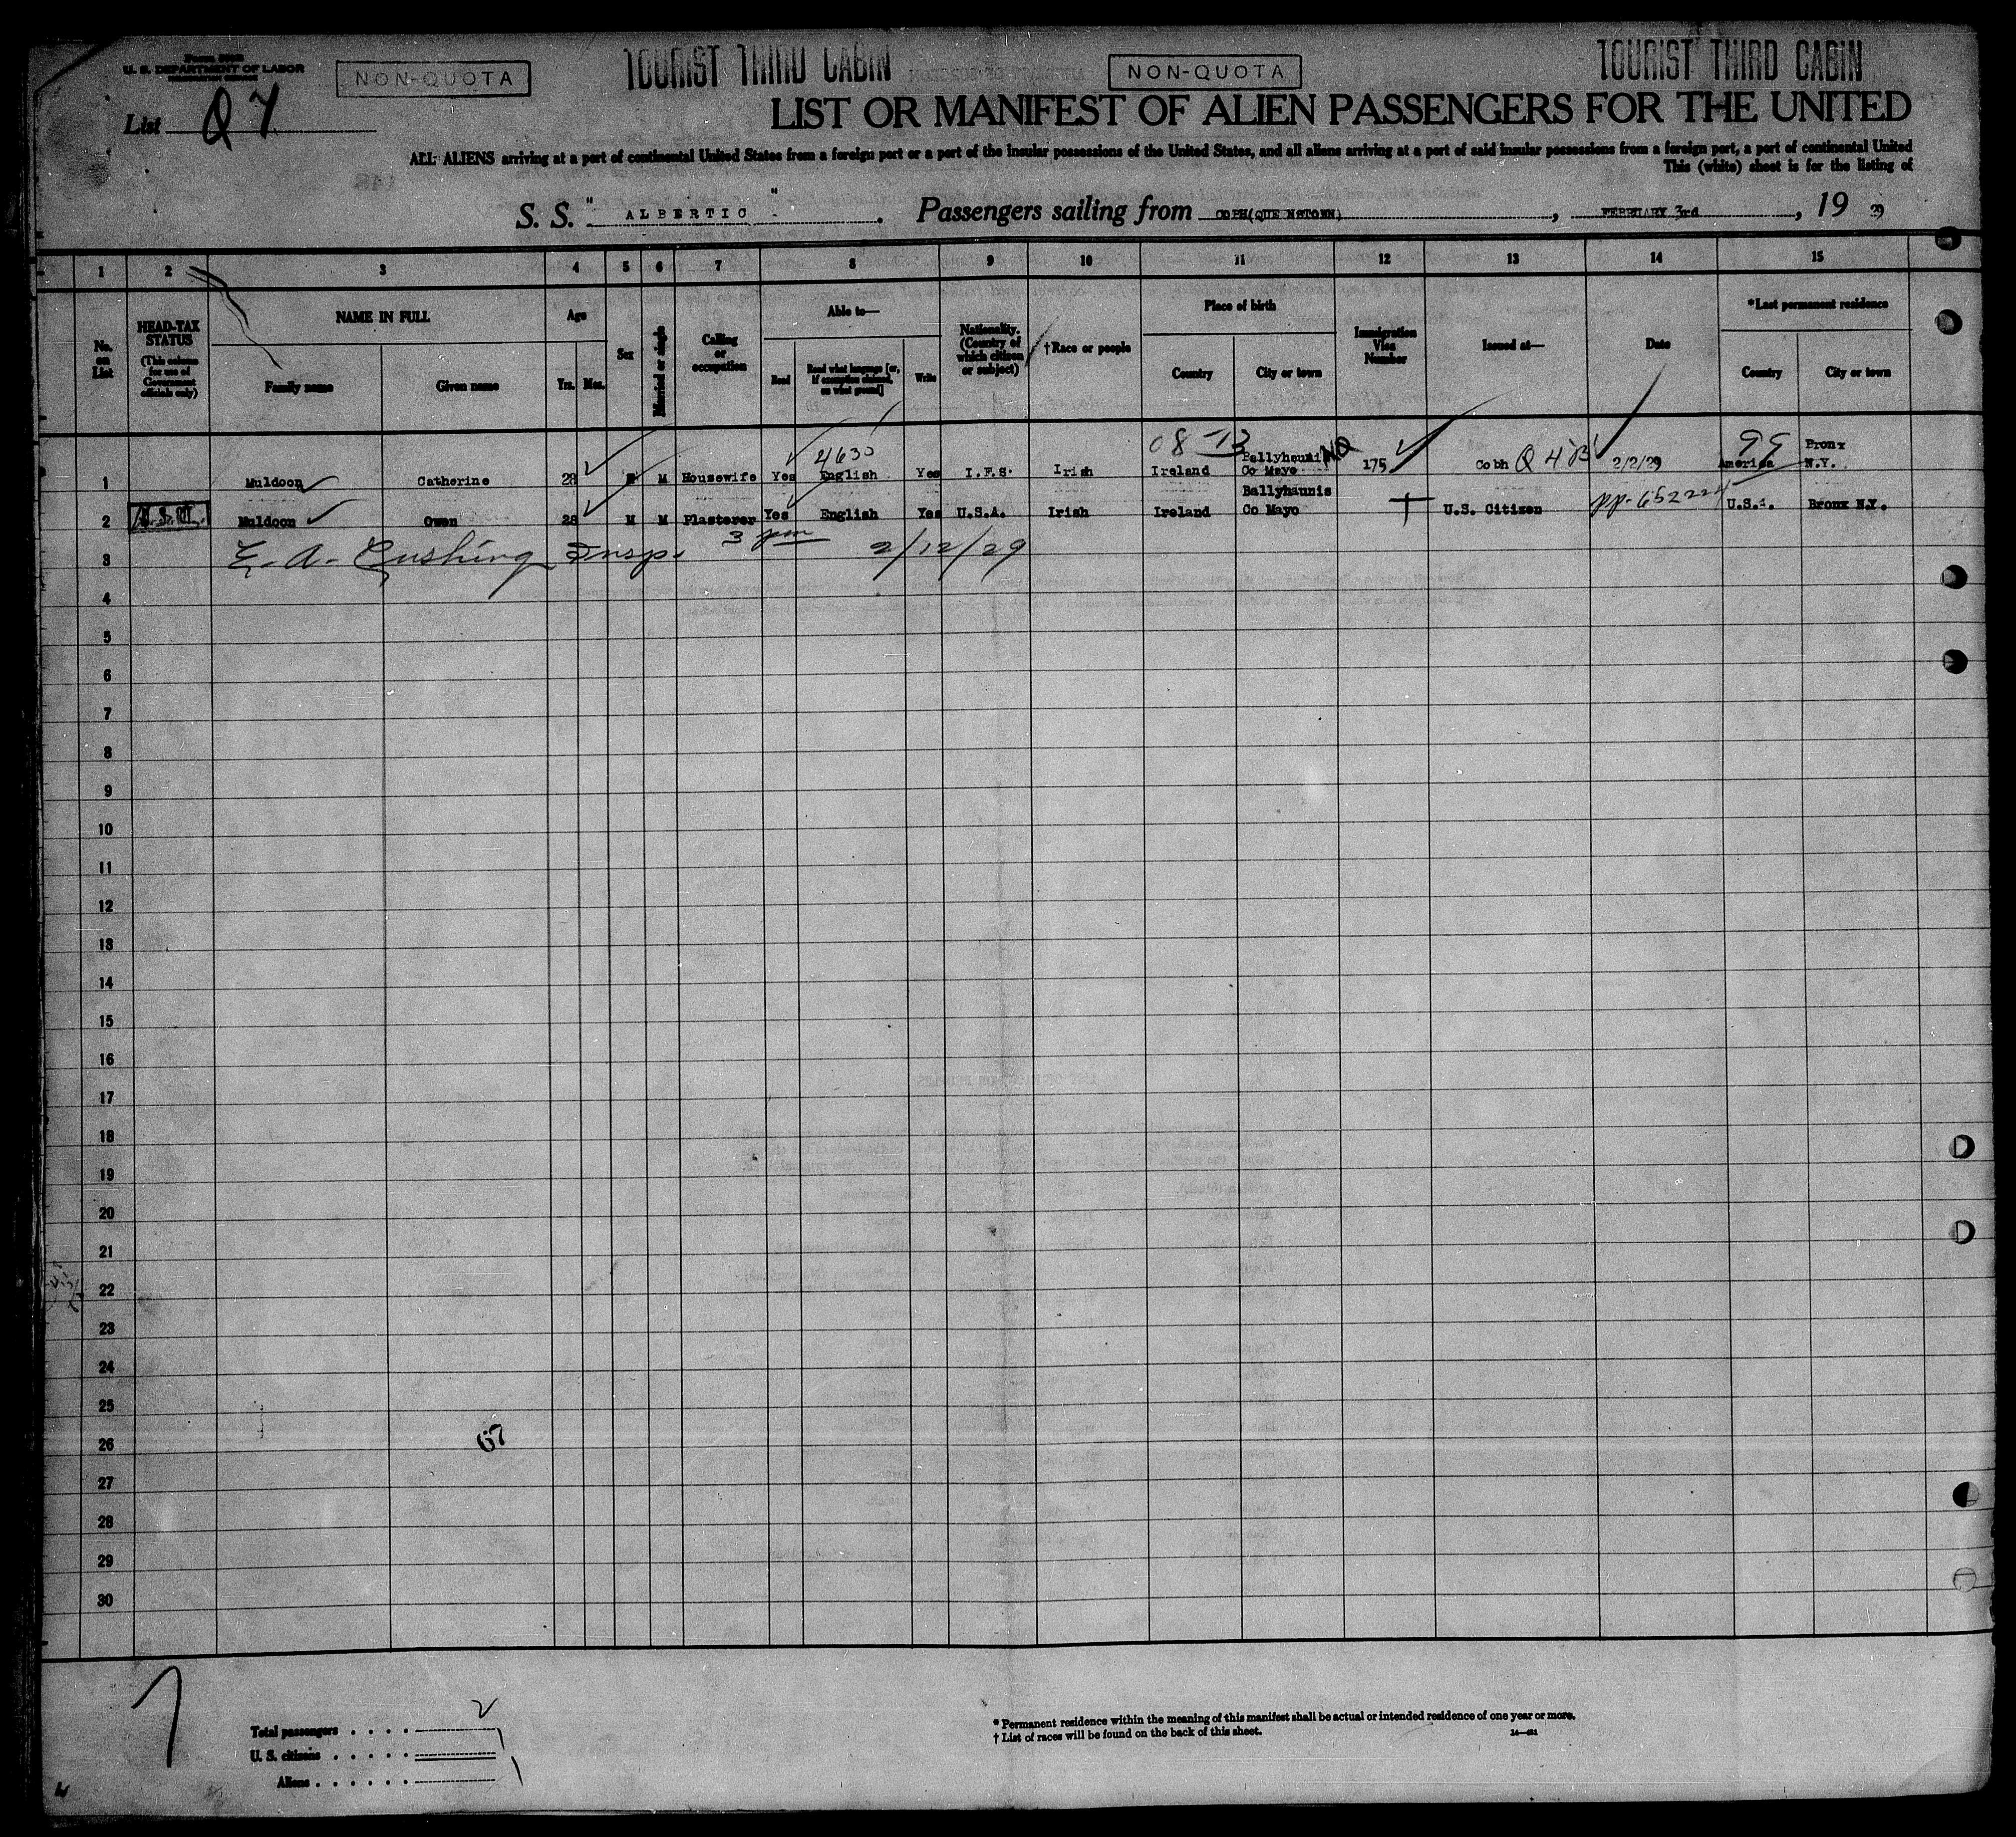 U. S. DEPARTMENT OF LABOR
NON-QUOTA
TOURIST THIRD CABIN
NON-QUOTA
TOURIST THIRD CABIN
List Q 7
LIST OR MANIFEST OF ALIEN PASSENGERS FOR THE UNITED
ALL ALIENS arriving at a port of continental United States from a foreign port or a port of the insular possessions of the United States, and all aliens arriving at a port of said insular possessions from a foreign port, a port of continental United
This (white) sheet is for the listing of
S. S. " ALBERTIC " . Passengers sailing from COBH(QUEENSTOWN) , FEBRUARY 3rd , 19 29
1 2 3 4 5 6 7 8 9 10 11 12 13 14 15
No. on List
HEAD-TAX STATUS (This column for use of Government officials only)
NAME IN FULL
Family name
Given name
Age
Yrs. Mos.
Sex
Married or single
Calling or occupation
Able to—
Read
Read what language [or, if exemption claimed, on what ground]
Write
Nationality. (Country of which citizen or subject)
† Race or people
Place of birth
Country
City or town
Immigration Visa Number
Issued at—
Date
*Last permanent residence
Country
City or town
4630
08 99
1 Muldoon Catherine 28 F M Housewife Yes English Yes I.F.S. Irish Ireland Ballyhauni Co Mayo NQ 175 Cobh Q 4 B 2/2/29 America Bronx N.Y.
2 Muldoon Owen 28 M M Plasterer Yes English Yes U.S.A. Irish Ireland Ballyhaunis Co Mayo U.S. Citizen U.S.A. Bronx N.Y.
3 E. A. Cushing Insp. 3 pm 2/12/29
4
5
6
7
8
9
10
11
12
13
14
15
16
17
18
19
20
21
22
23
24
25
26 67
27
28
29
30
Total passengers . . . . 2
U. S. citizens . . . . .
Aliens . . . . . .
* Permanent residence within the meaning of this manifest shall be actual or intended residence of one year or more.
† List of races will be found on the back of this sheet.